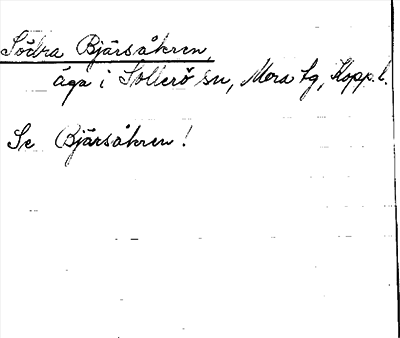 Södra Bjärsåkren,
äga i Sollerö sn, Mora tg, Kopp. l.
Se Bjärsåkren!